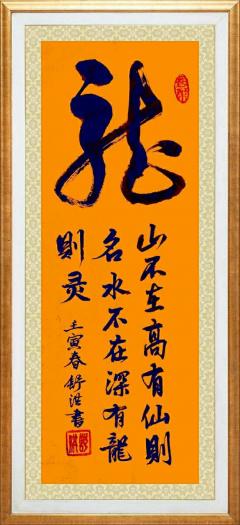 龙
山不在高有仙则
名水不在深有龍
则灵
壬寅春舒浩書